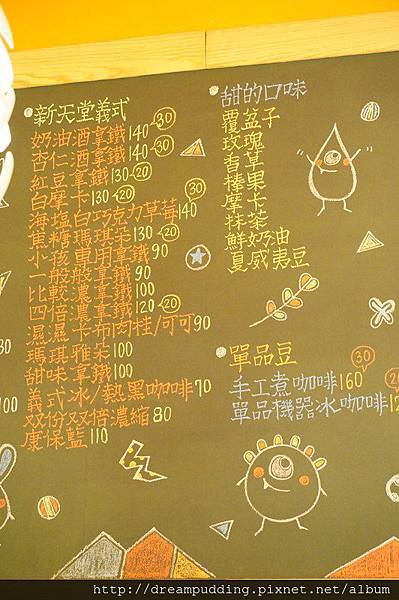 新天堂義式
奶油酒拿鐵140-30
杏仁酒拿鐵140-30
紅豆拿鐵130-20
白摩卡130-20
30
海塩白巧克力草莓140
焦糖瑪琪朵130-20
小孩專用拿鐵90
一般般拿鐵90
比較濃拿鐵100
四倍濃拿鐵120-20
濕濕卡布肉桂/可可90
瑪琪雅朵100
甜味拿鐵100
義式冰/熱黑咖啡70
双份双倍濃縮80
康保藍110
甜的口味
覆盆子
玫瑰
香草
榛果
摩卡
抹茶
鮮奶油
夏威夷豆
單品豆
30
手工煮咖啡160
20
單品機器冰咖啡12
http://dreampudding.pixnet.net/album